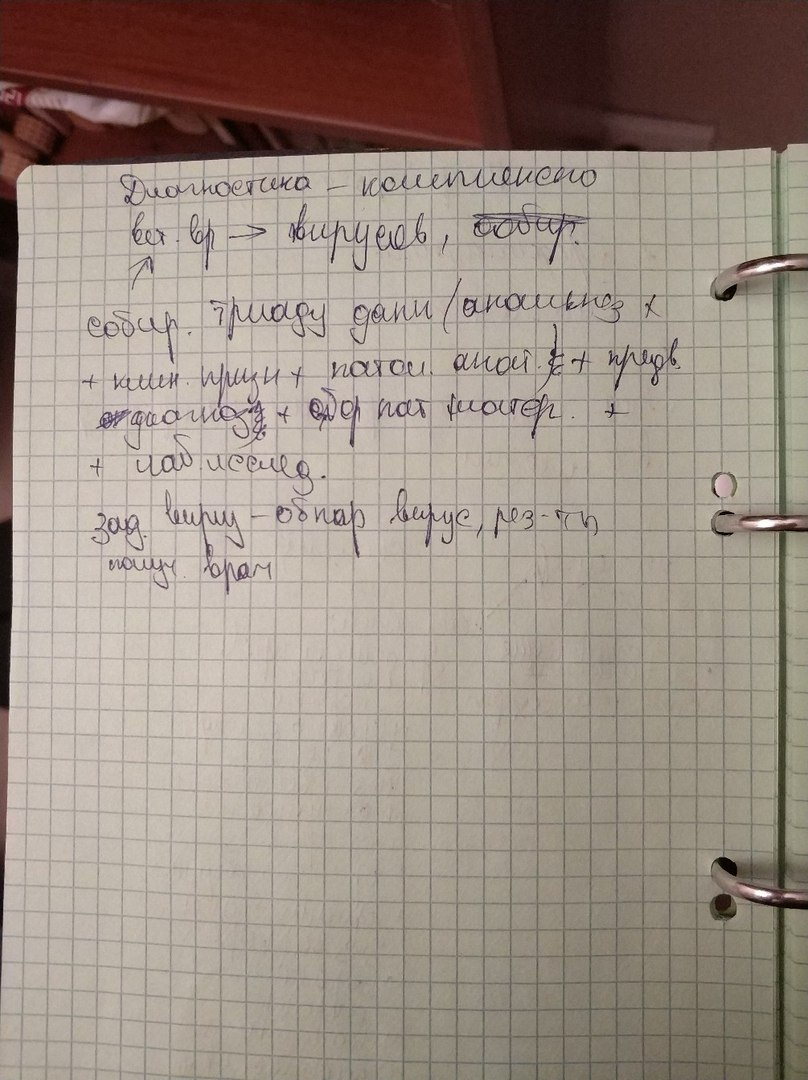 Диагностика – комплексно
вет. вр → вирусов, собир.
собир. триаду данн (анамнез +
+ клин. призн + патол. анат.) + предв.
диагноз + отбор пат матер. +
+ лаб. исслед.
зад. виру – обнар вирус, рез-ты
получ. врач